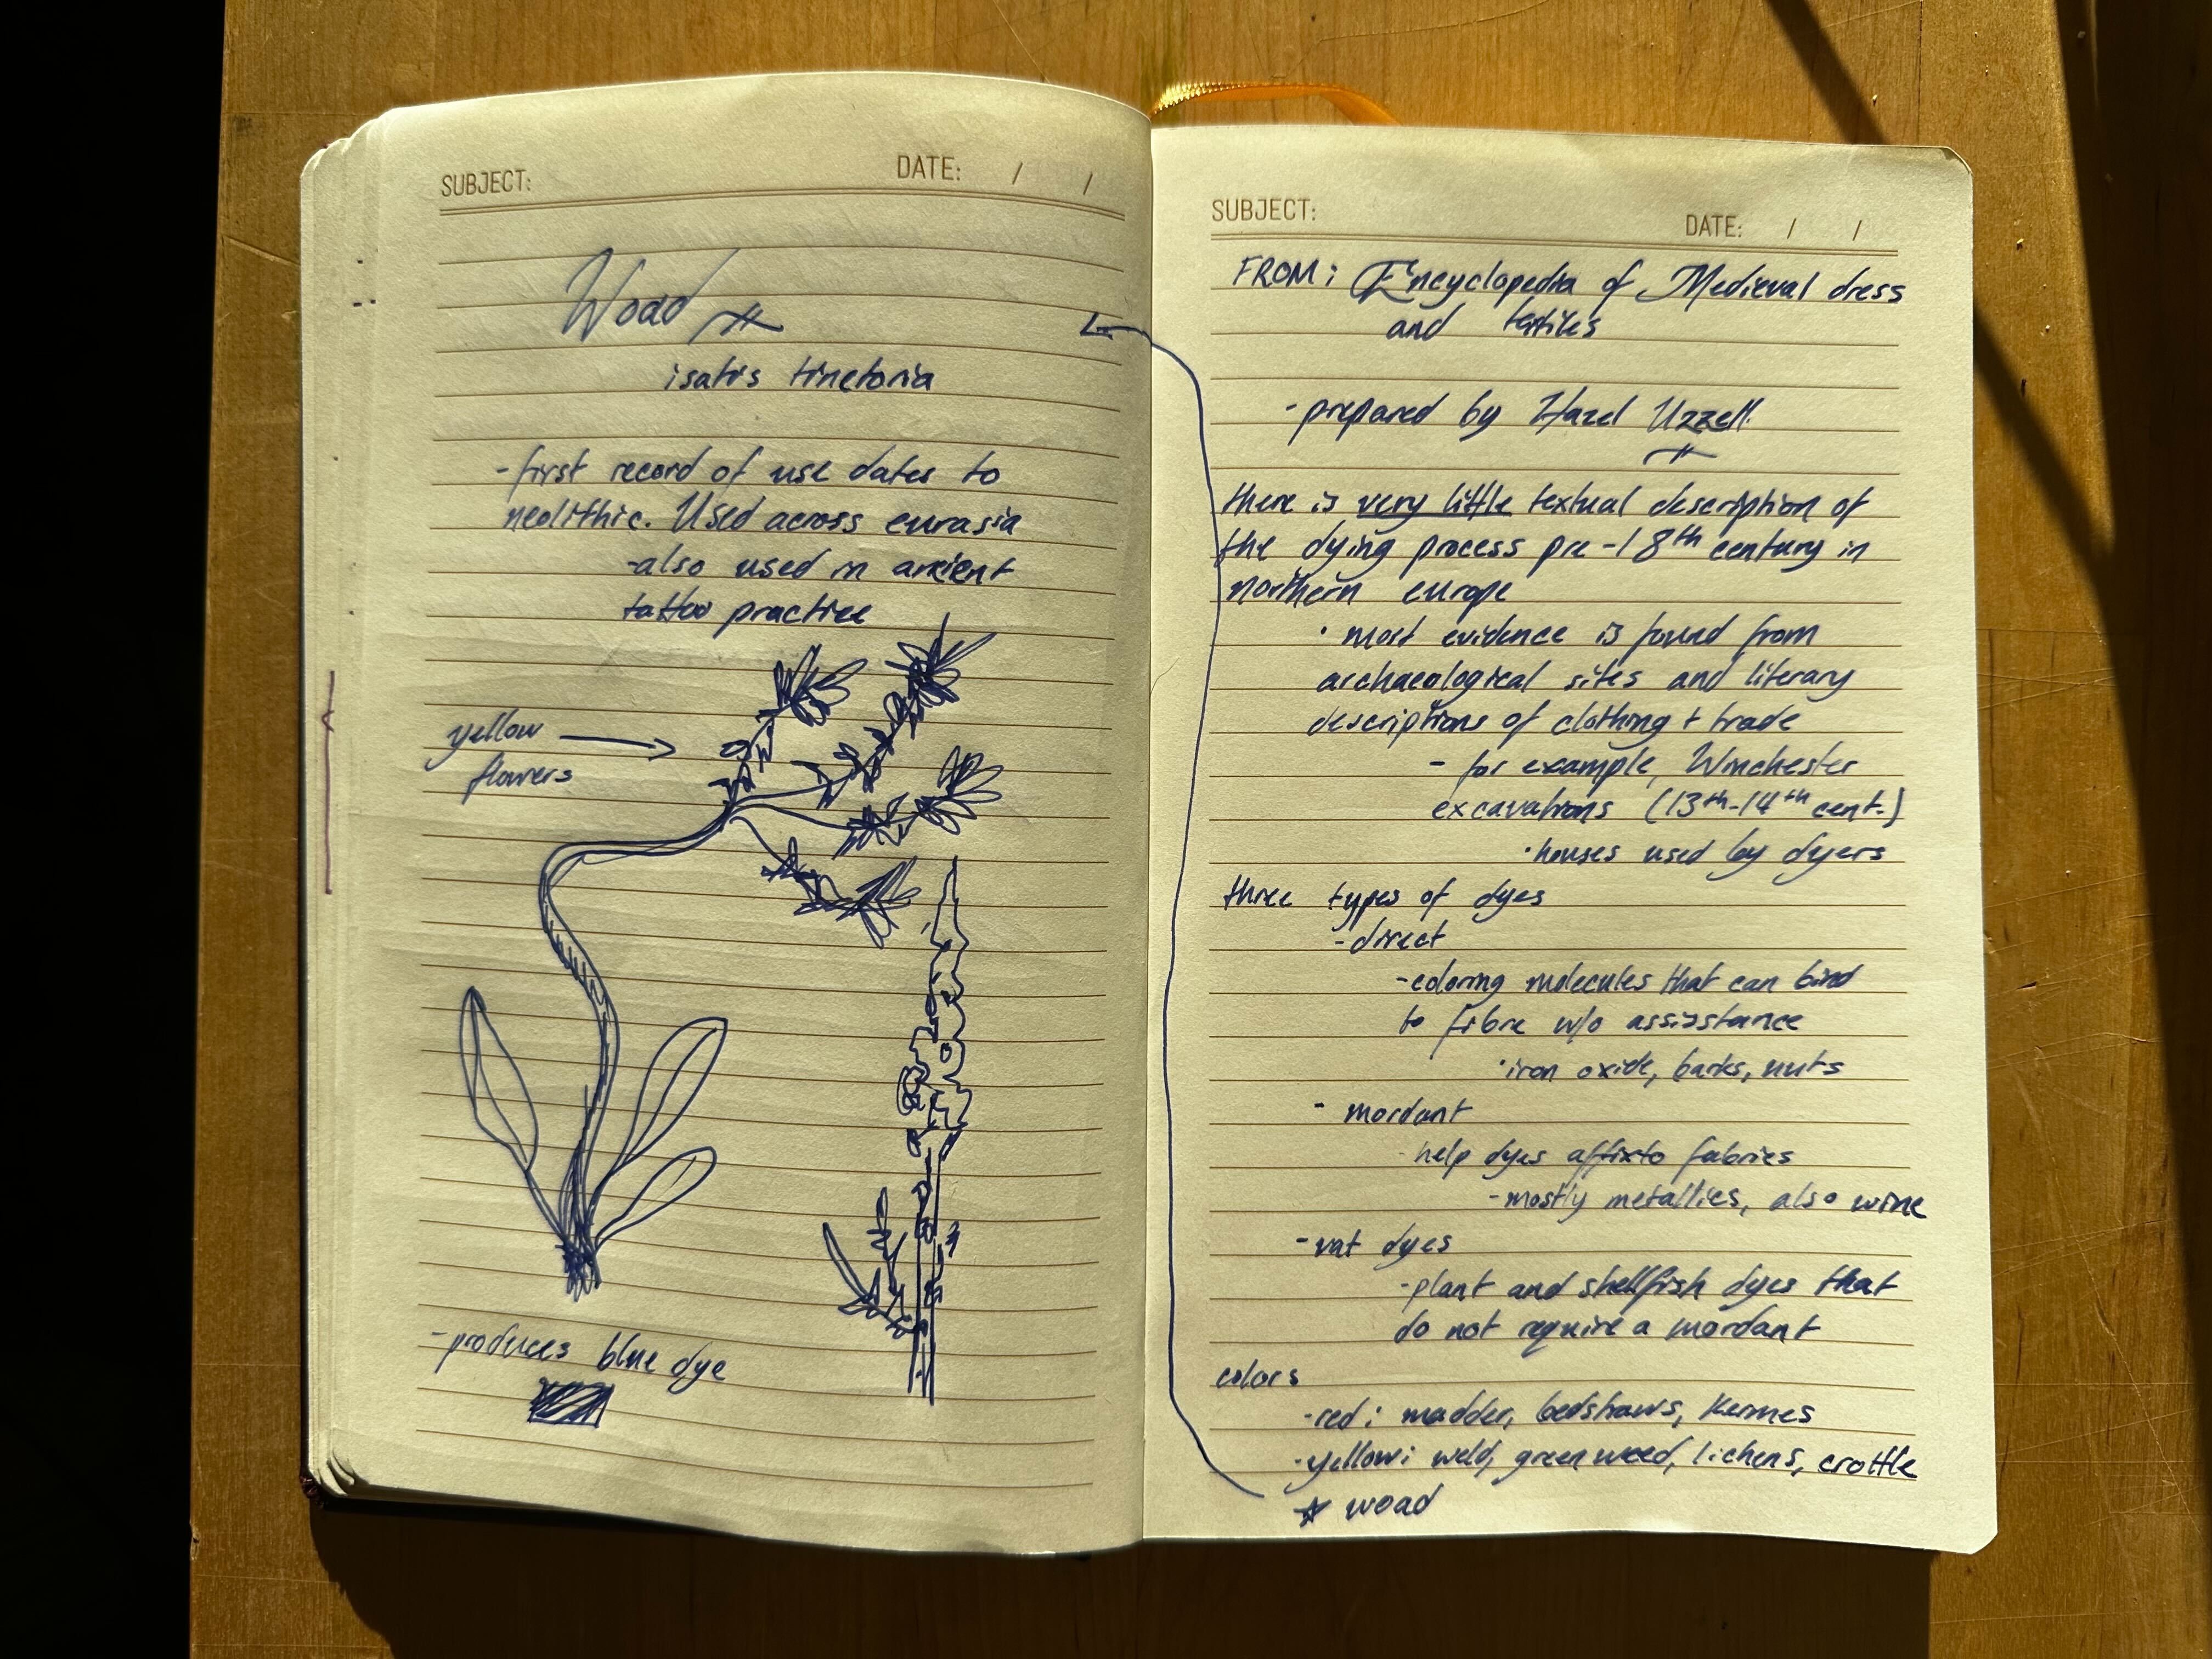 SUBJECT:
DATE: / /
Woad
isatis tinctoria
-first record of use dates to
neolithic. Used across eurasia
-also used in ancient
tattoo practice
yellow
flowers
-produces blue dye
SUBJECT:
DATE: / /
FROM: Encyclopedia of Medieval dress
and textiles
-prepared by Hazel Uzzell.
there is very little textual description of
the dying process pre-18th century in
northern europe
• most evidence is found from
archaeological sites and literary
descriptions of clothing + trade
- for example, Winchester
excavations (13th-14th cent.)
• houses used by dyers
three types of dyes
-direct
-coloring molecules that can bind
to fibre w/o assistance
• iron oxide, barks, nuts
- mordant
help dyes affix to fabrics
-mostly metallics, also wine
-vat dyes
-plant and shellfish dyes that
do not require a mordant
colors
-red: madder, bedstraws, Kermes
-yellow: weld, greenweed, lichens, crottle
☆ woad